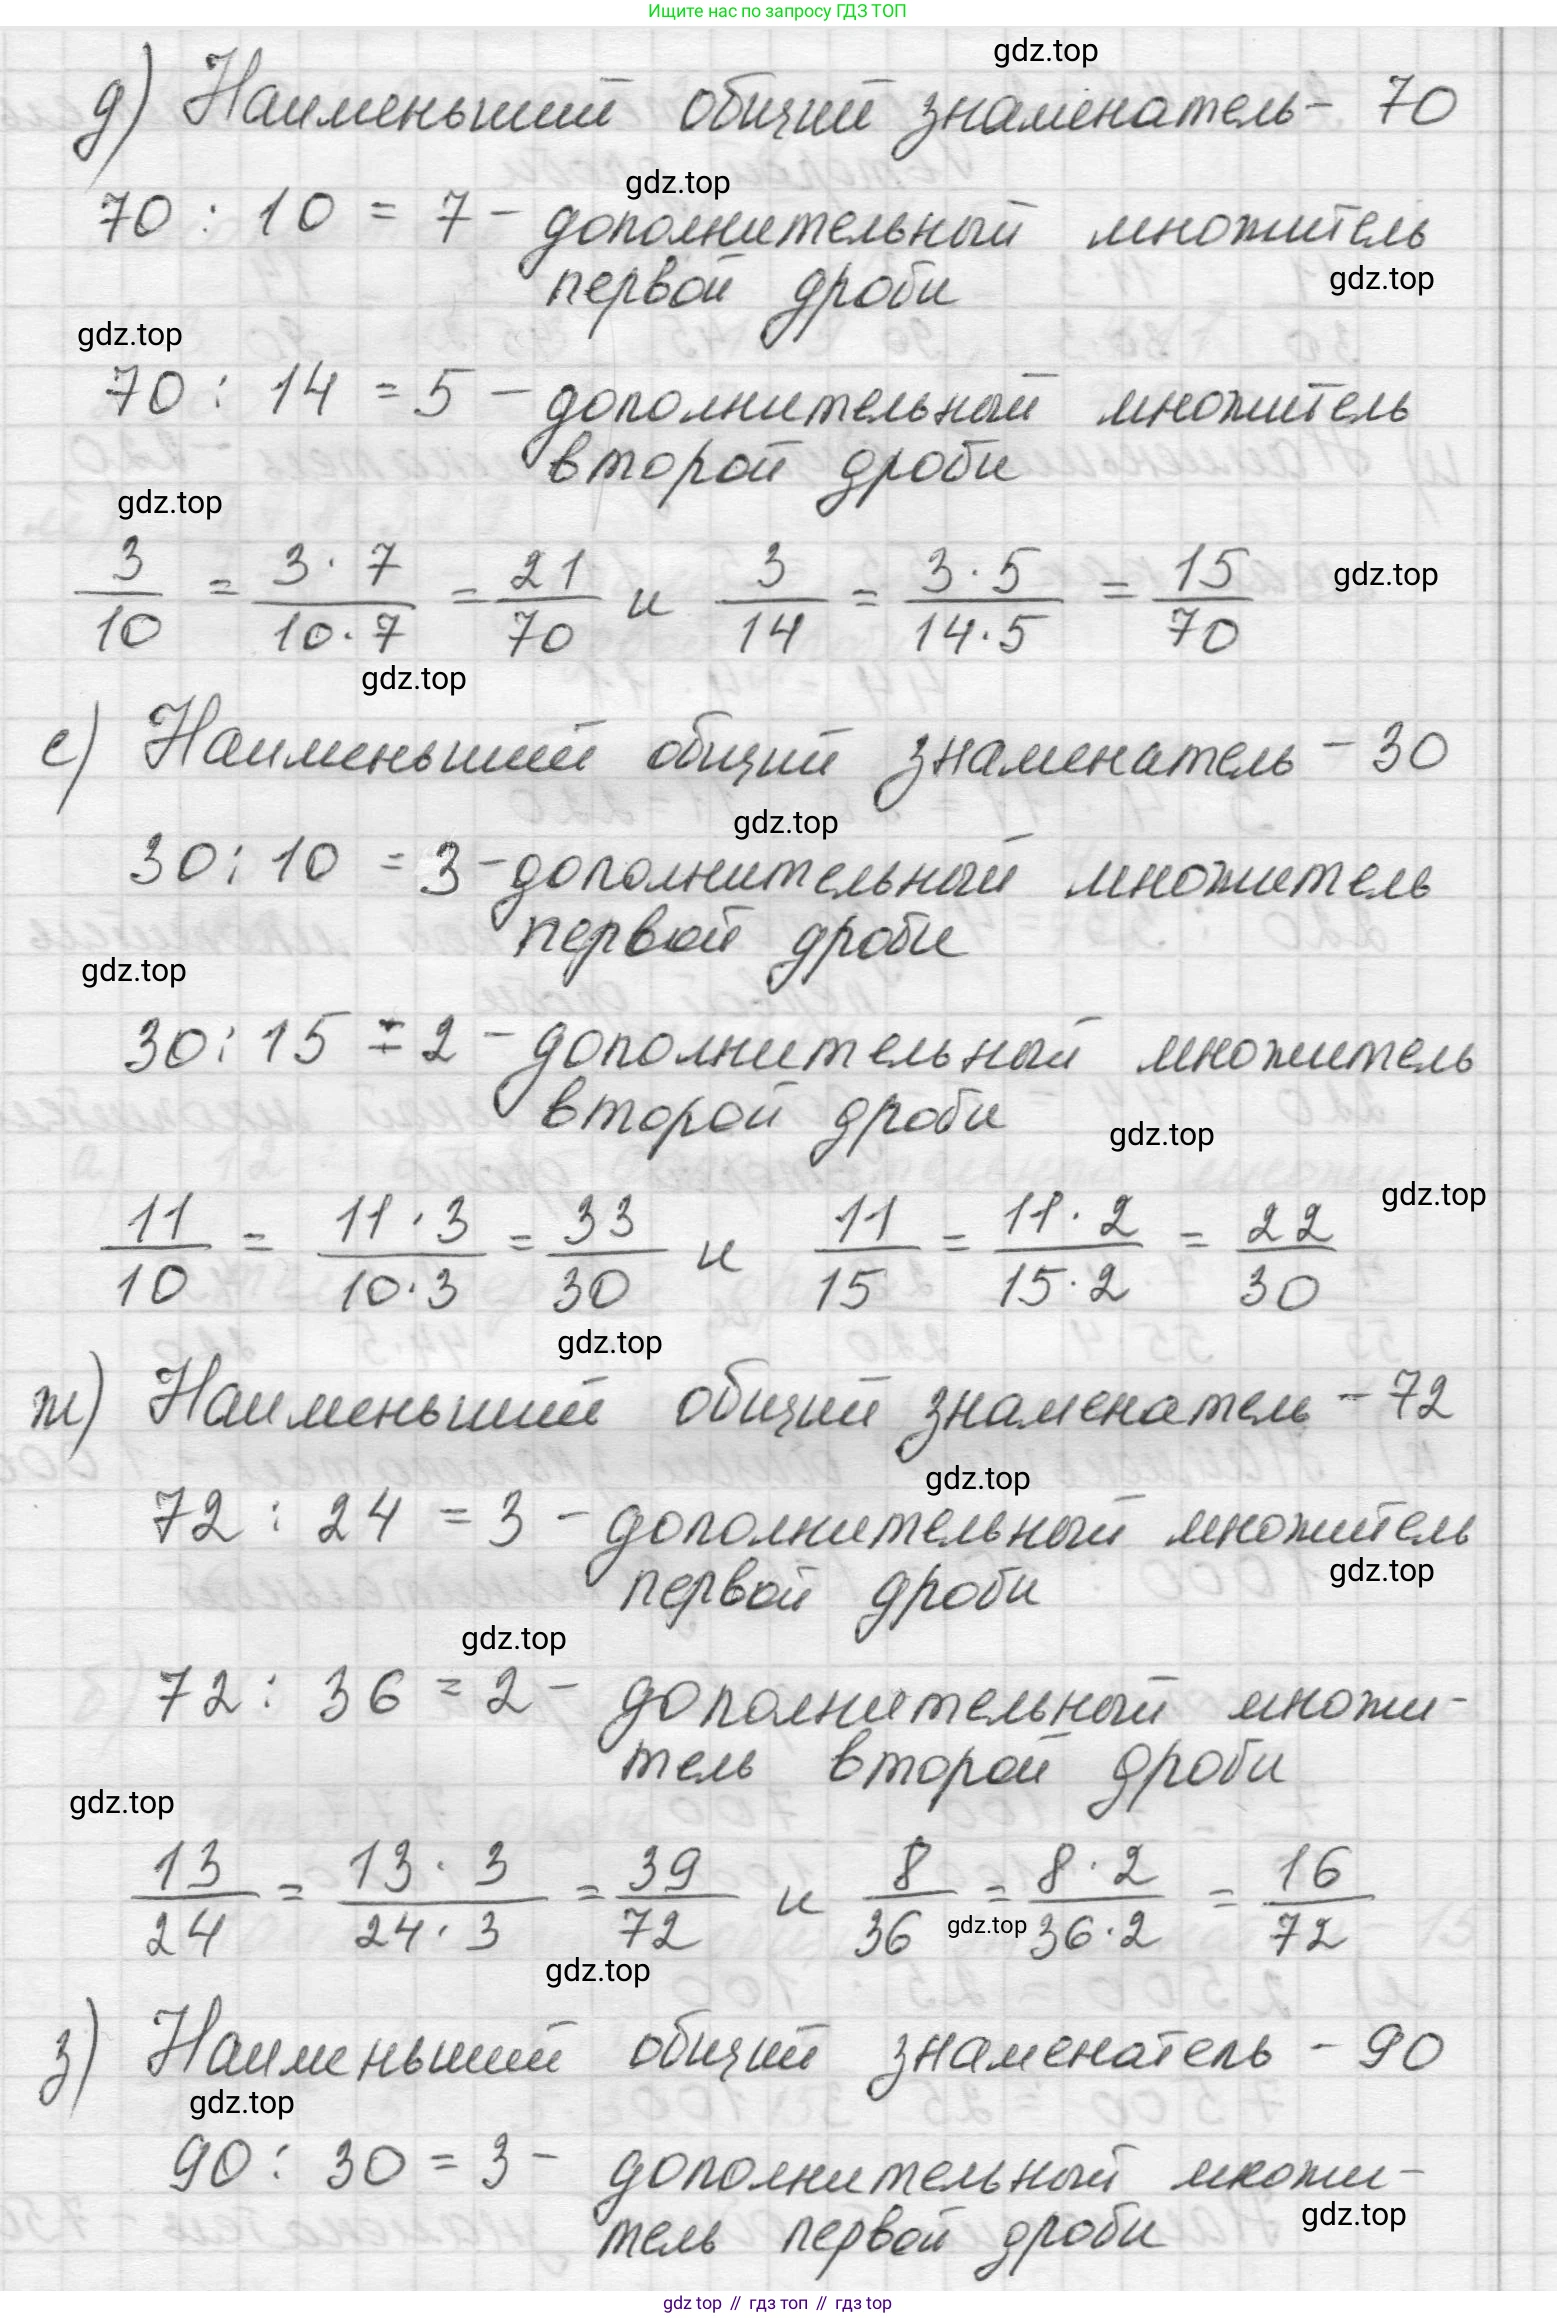 Ищите нас по запросу ГДЗ ТОП
gdz.top
д) Наименьший общий знаменатель - 70
gdz.top
70 : 10 = 7 - дополнительный множитель
первой дроби
gdz.top
gdz.top
70 : 14 = 5 - дополнительный множитель
второй дроби
gdz.top
3/10 = 3·7/10·7 = 21/70 и 3/14 = 3·5/14·5 = 15/70
gdz.top
gdz.top
е) Наименьший общий знаменатель - 30
gdz.top
30 : 10 = 3 - дополнительный множитель
первой дроби
gdz.top
30 : 15 = 2 - дополнительный множитель
второй дроби
gdz.top
gdz.top
11/10 = 11·3/10·3 = 33/30 и 11/15 = 11·2/15·2 = 22/30
gdz.top
ж) Наименьший общий знаменатель - 72
gdz.top
72 : 24 = 3 - дополнительный множитель
gdz.top
первой дроби
gdz.top
72 : 36 = 2 - дополнительный множи-
тель второй дроби
gdz.top
13/24 = 13·3/24·3 = 39/72 и 8/36 = 8·2/36·2 = 16/72
gdz.top
gdz.top
з) Наименьший общий знаменатель - 90
gdz.top
90 : 30 = 3 - дополнительный множи-
gdz.top
тель первой дроби
gdz top // гдз топ // гдз top